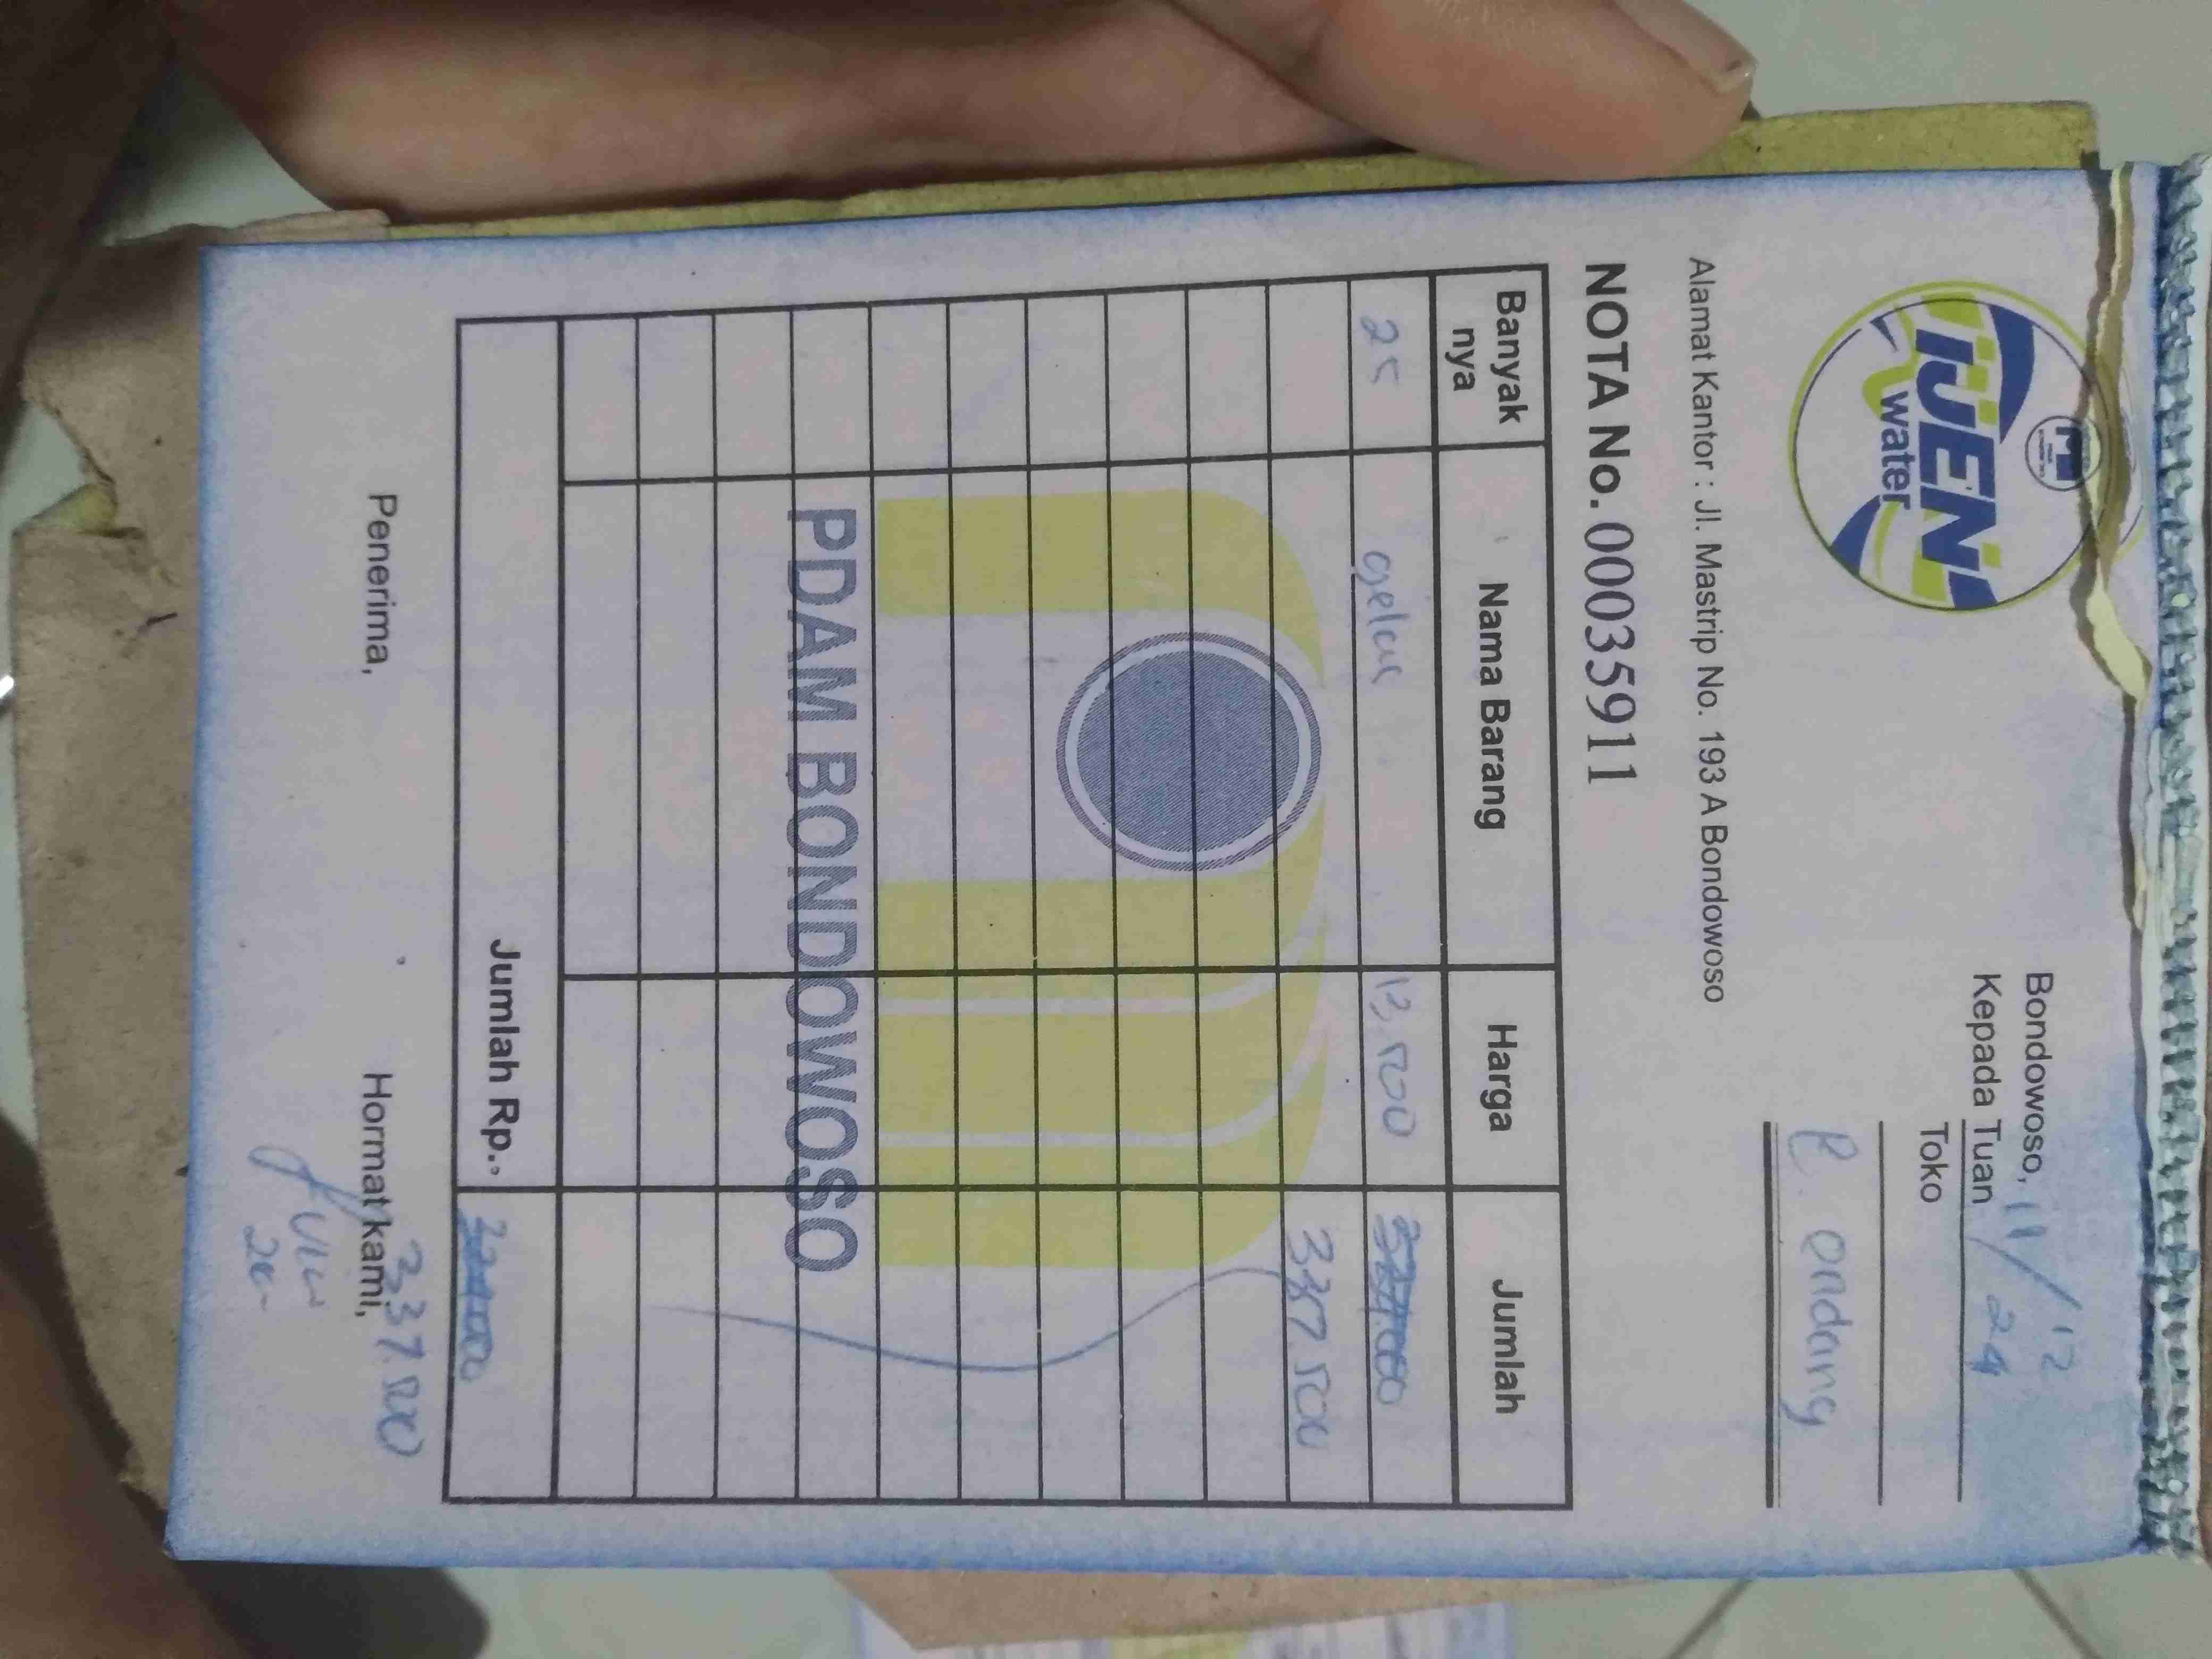 IJEN
water
Bondowoso, 11/12
24
Kepada Tuan
Toko
P. Endang
Alamat Kantor : Jl. Mastrip No. 193 A Bondowoso
NOTA No. 00035911
Banyak nya Nama Barang Harga Jumlah
25 gelas 13.500 324.000
337.500
PDAM BONDOWOSO
Jumlah Rp. 324.000
337.500
Penerima, Hormat kami,